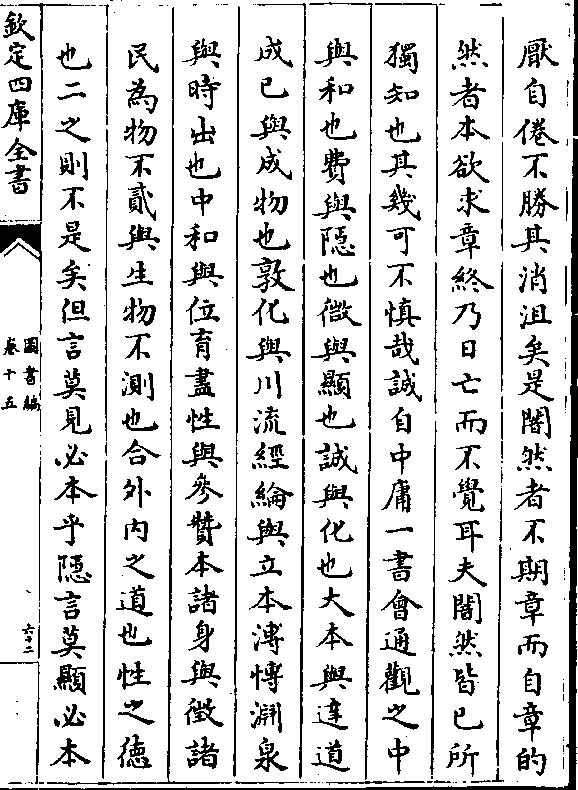 厭自倦不勝其消沮矣是闇然者不期章而自章的
然者本欲求章終乃日亡而不覺耳夫闇然皆已所
獨知也其幾可不慎哉誠自中庸一書會通觀之中
與和也費與隱也微與顯也誠與化也大本與達道
成已與成物也敦化與川流經綸與立本溥博淵泉
與時出也中和與位育盡性與參贊本諸身與徵諸
民為物不貳與生物不測也合外内之道也性之德
也二之則不是矣但言莫見必本乎隱言莫顯必本
欽定四庫全書
圖書編
卷十五
六二